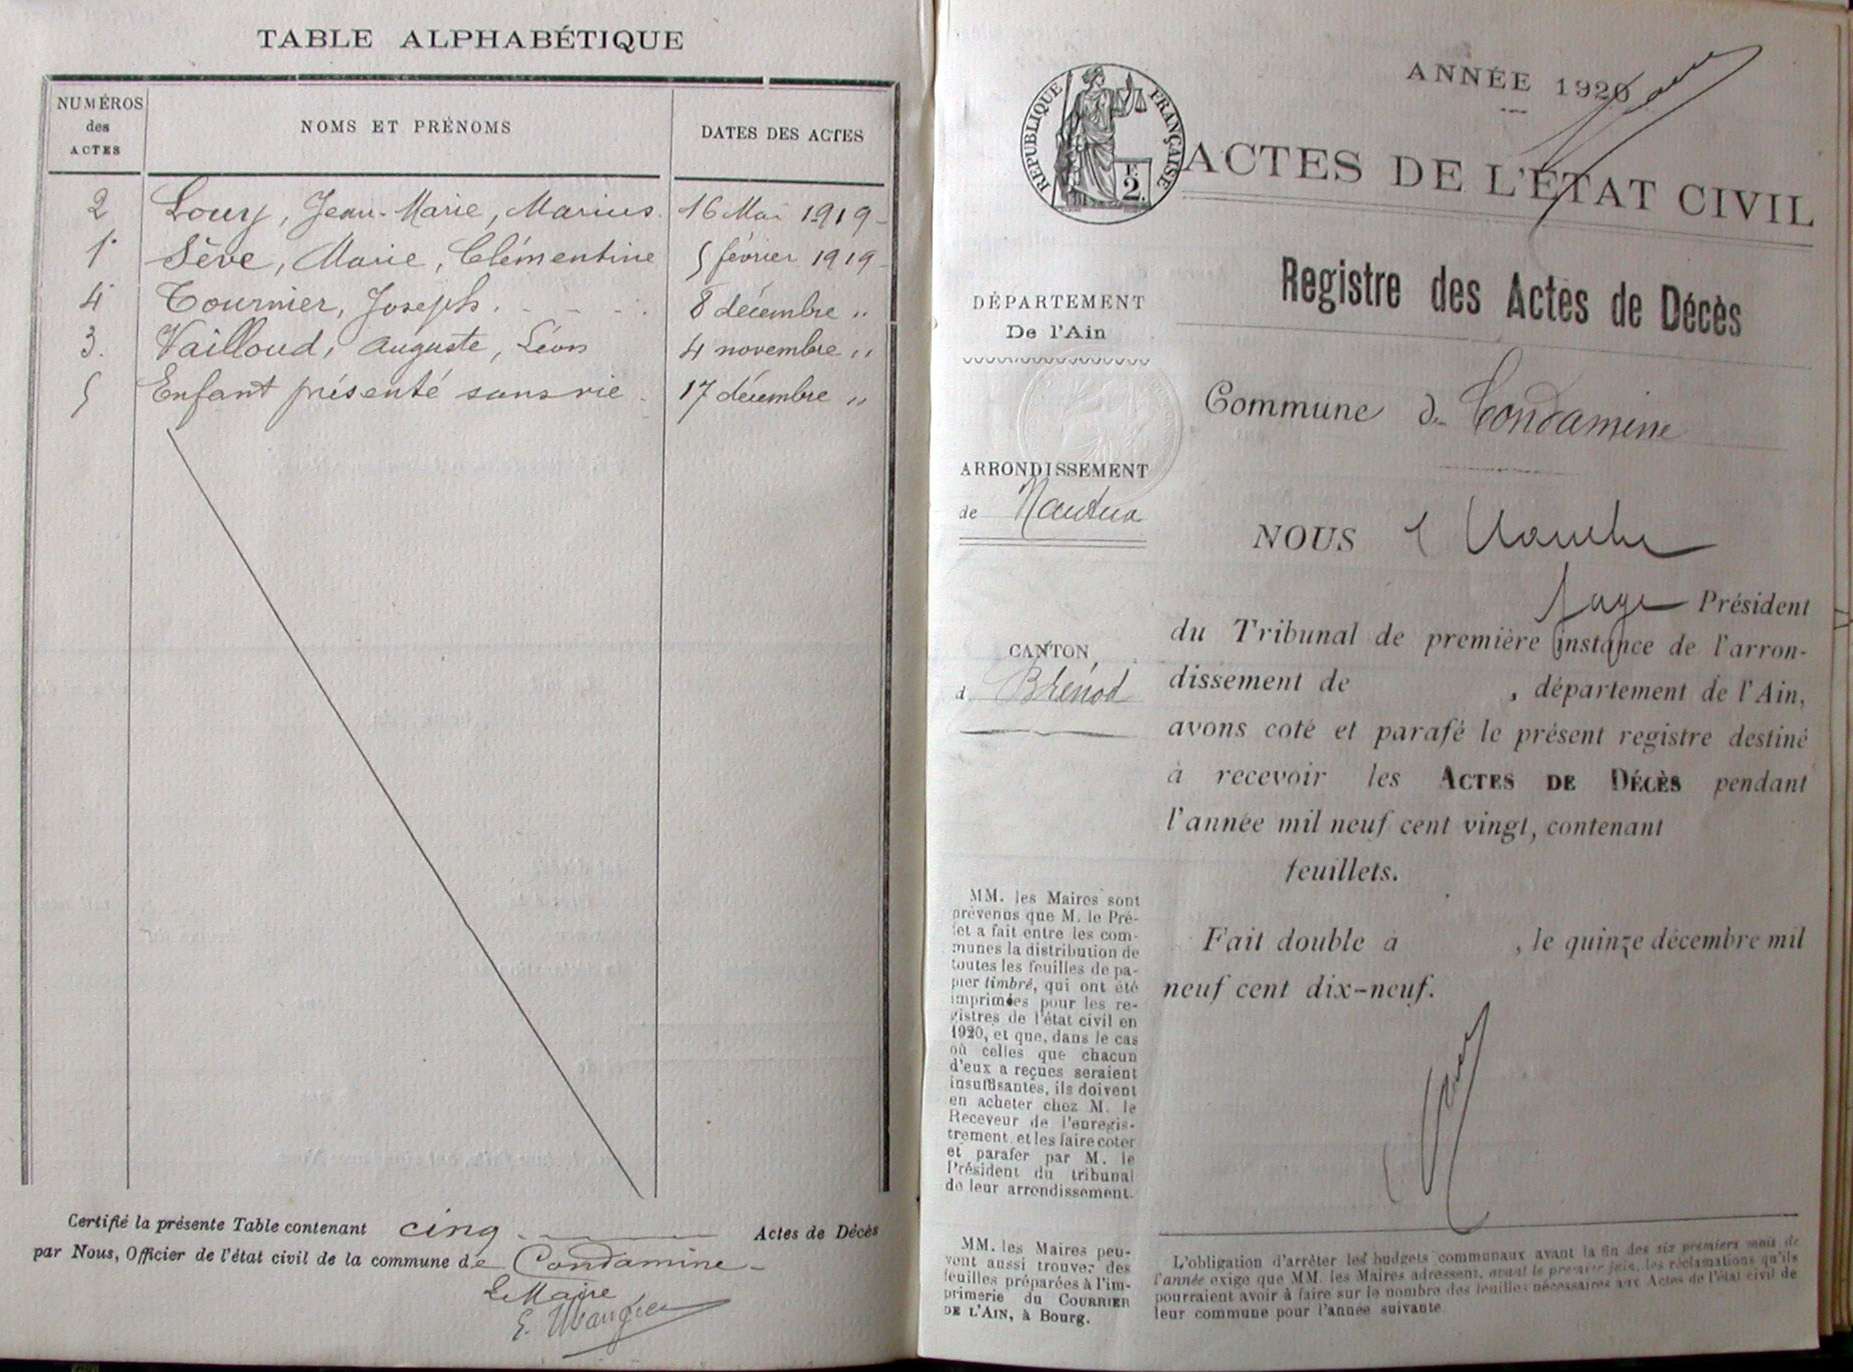 TABLE ALPHABÉTIQUE
NUMÉROS des ACTES
NOMS ET PRÉNOMS
DATES DES ACTES
2 Loury, Jean-Marie, Marius. 16 Mai 1919
1 Sève, Marie, Clémentine 5 février 1919
4 Tournier, Joseph. 8 décembre "
3. Vailloud, Auguste, Léon 4 novembre "
5 Enfant présenté sans vie 17 décembre "
Certifié la présente Table contenant cinq Actes de Décès
par Nous, Officier de l'état civil de la commune de Condamine
Le Maire
ANNÉE 1920
RÉPUBLIQUE FRANÇAISE
2
ACTES DE L'ÉTAT CIVIL
Registre des Actes de Décès
DÉPARTEMENT
De l'Ain
Commune de Condamine
ARRONDISSEMENT
de Nantua
NOUS
Juge Président
du Tribunal de première instance de l'arron-
dissement de , département de l'Ain,
avons coté et parafé le présent registre destiné
à recevoir les ACTES DE DÉCÈS pendant
l'année mil neuf cent vingt, contenant
feuillets.
Fait double à , le quinze décembre mil
neuf cent dix-neuf.
CANTON
d Brénod
MM. les Maires sont
prévenus que M. le Pré-
fet a fait entre les com-
munes la distribution de
toutes les feuilles de pa-
pier timbré, qui ont été
imprimées pour les re-
gistres de l'état civil en
1920, et que, dans le cas
où celles que chacun
d'eux a reçues seraient
insuffisantes, ils doivent
en acheter chez M. le
Receveur de l'enregis-
trement et les faire coter
et parafer par M. le
Président du tribunal
de leur arrondissement.
MM. les Maires peu-
vent aussi trouver des
feuilles préparées à l'im-
primerie du COURRIER
DE L'AIN, à Bourg.
L'obligation d'arrêter les budgets communaux avant la fin des six premiers mois de
l'année exige que MM. les Maires adressent, avant le premier juin, les réclamations qu'ils
pourraient avoir à faire sur le nombre des feuilles nécessaires aux Actes de l'état civil de
leur commune pour l'année suivante.